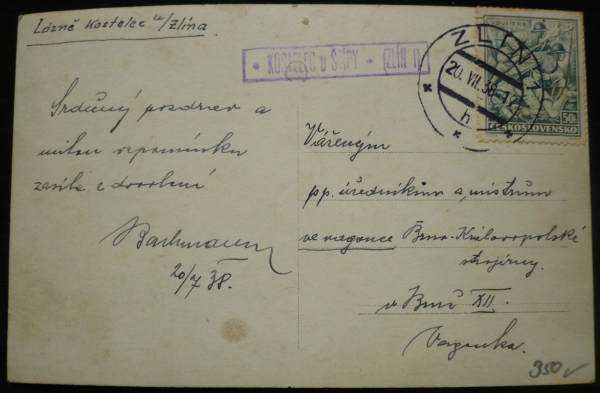 Lázně Kostelec u/Zlína
• KOSTELEC u ŠTÍPY • (ZLÍN 1)
ZLÍN 1
20. VII. 38-17
h
50h
ČESKOSLOVENSKO
Srdečný pozdrav a
milou vzpomínku
zasílá z dovolení
Bachmann
20/7 38.
Váženým
p.p. úředníkům a mistrům
ve vagonce Brno-Královopolské
strojírny.
v Brně XII.
Vagonka.
350